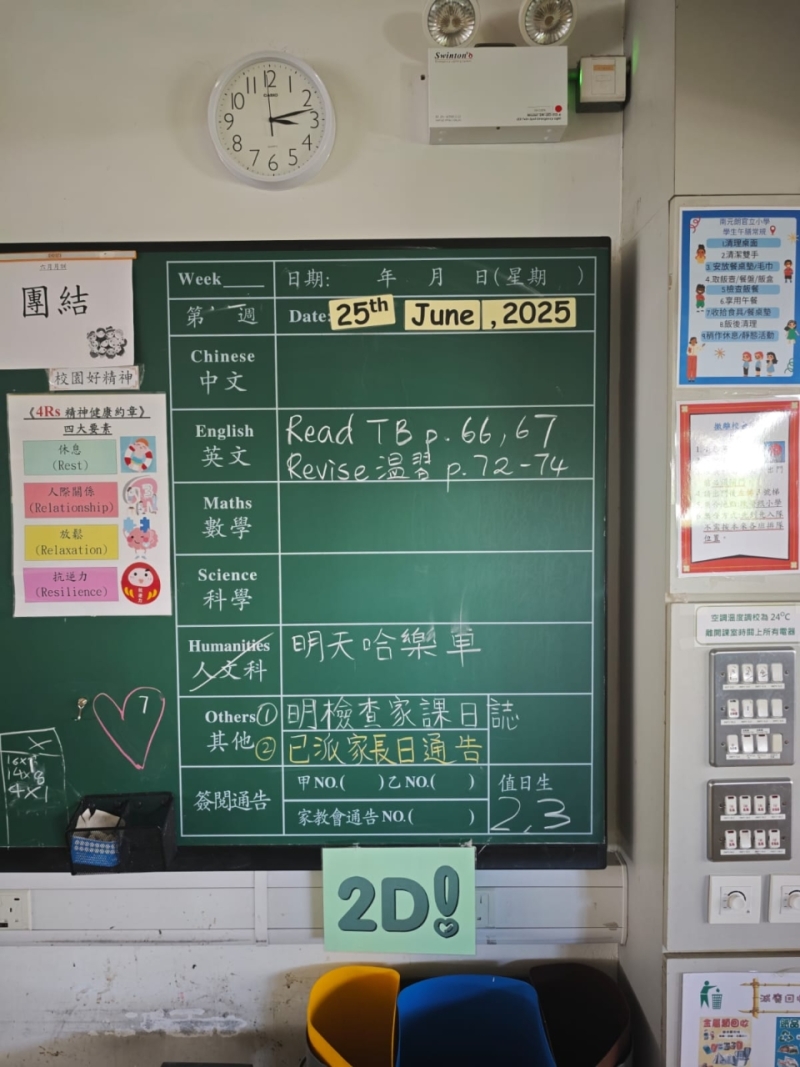 Swinton's
12 1 2 3 4 5 6 7 8 9 10 11
六月月訓
團結
校園好精神
《4Rs 精神健康約章》
四大要素
休息
(Rest)
人際關係
(Relationship)
放鬆
(Relaxation)
抗逆力
(Resilience)
7
Week____ 日期: 年 月 日(星期 )
第 週 Date: 25th June, 2025
Chinese
中文
English
英文
Read TB p. 66, 67
Revise 溫習 p.72-74
Maths
數學
Science
科學
Humanities
人文科
明天哈樂車
Others ①
其他 ②
明檢查家課日誌
已派家長日通告
簽閱通告
甲NO.( )乙NO.( )
家教會通告NO.( )
值日生
2,3
2D!
南元朗官立小學
學生午膳常規
1.清理桌面
2.清潔雙手
3.安放餐桌墊/毛巾
4.取飯壺/餐盤/飯盒
5.檢查飯餐
6.享用午餐
7.收拾食具/餐桌墊
8.飯後清理
9.稍作休息/靜態活動
位置。
空調溫度調校為 24°C
離開課室時關上所有電器